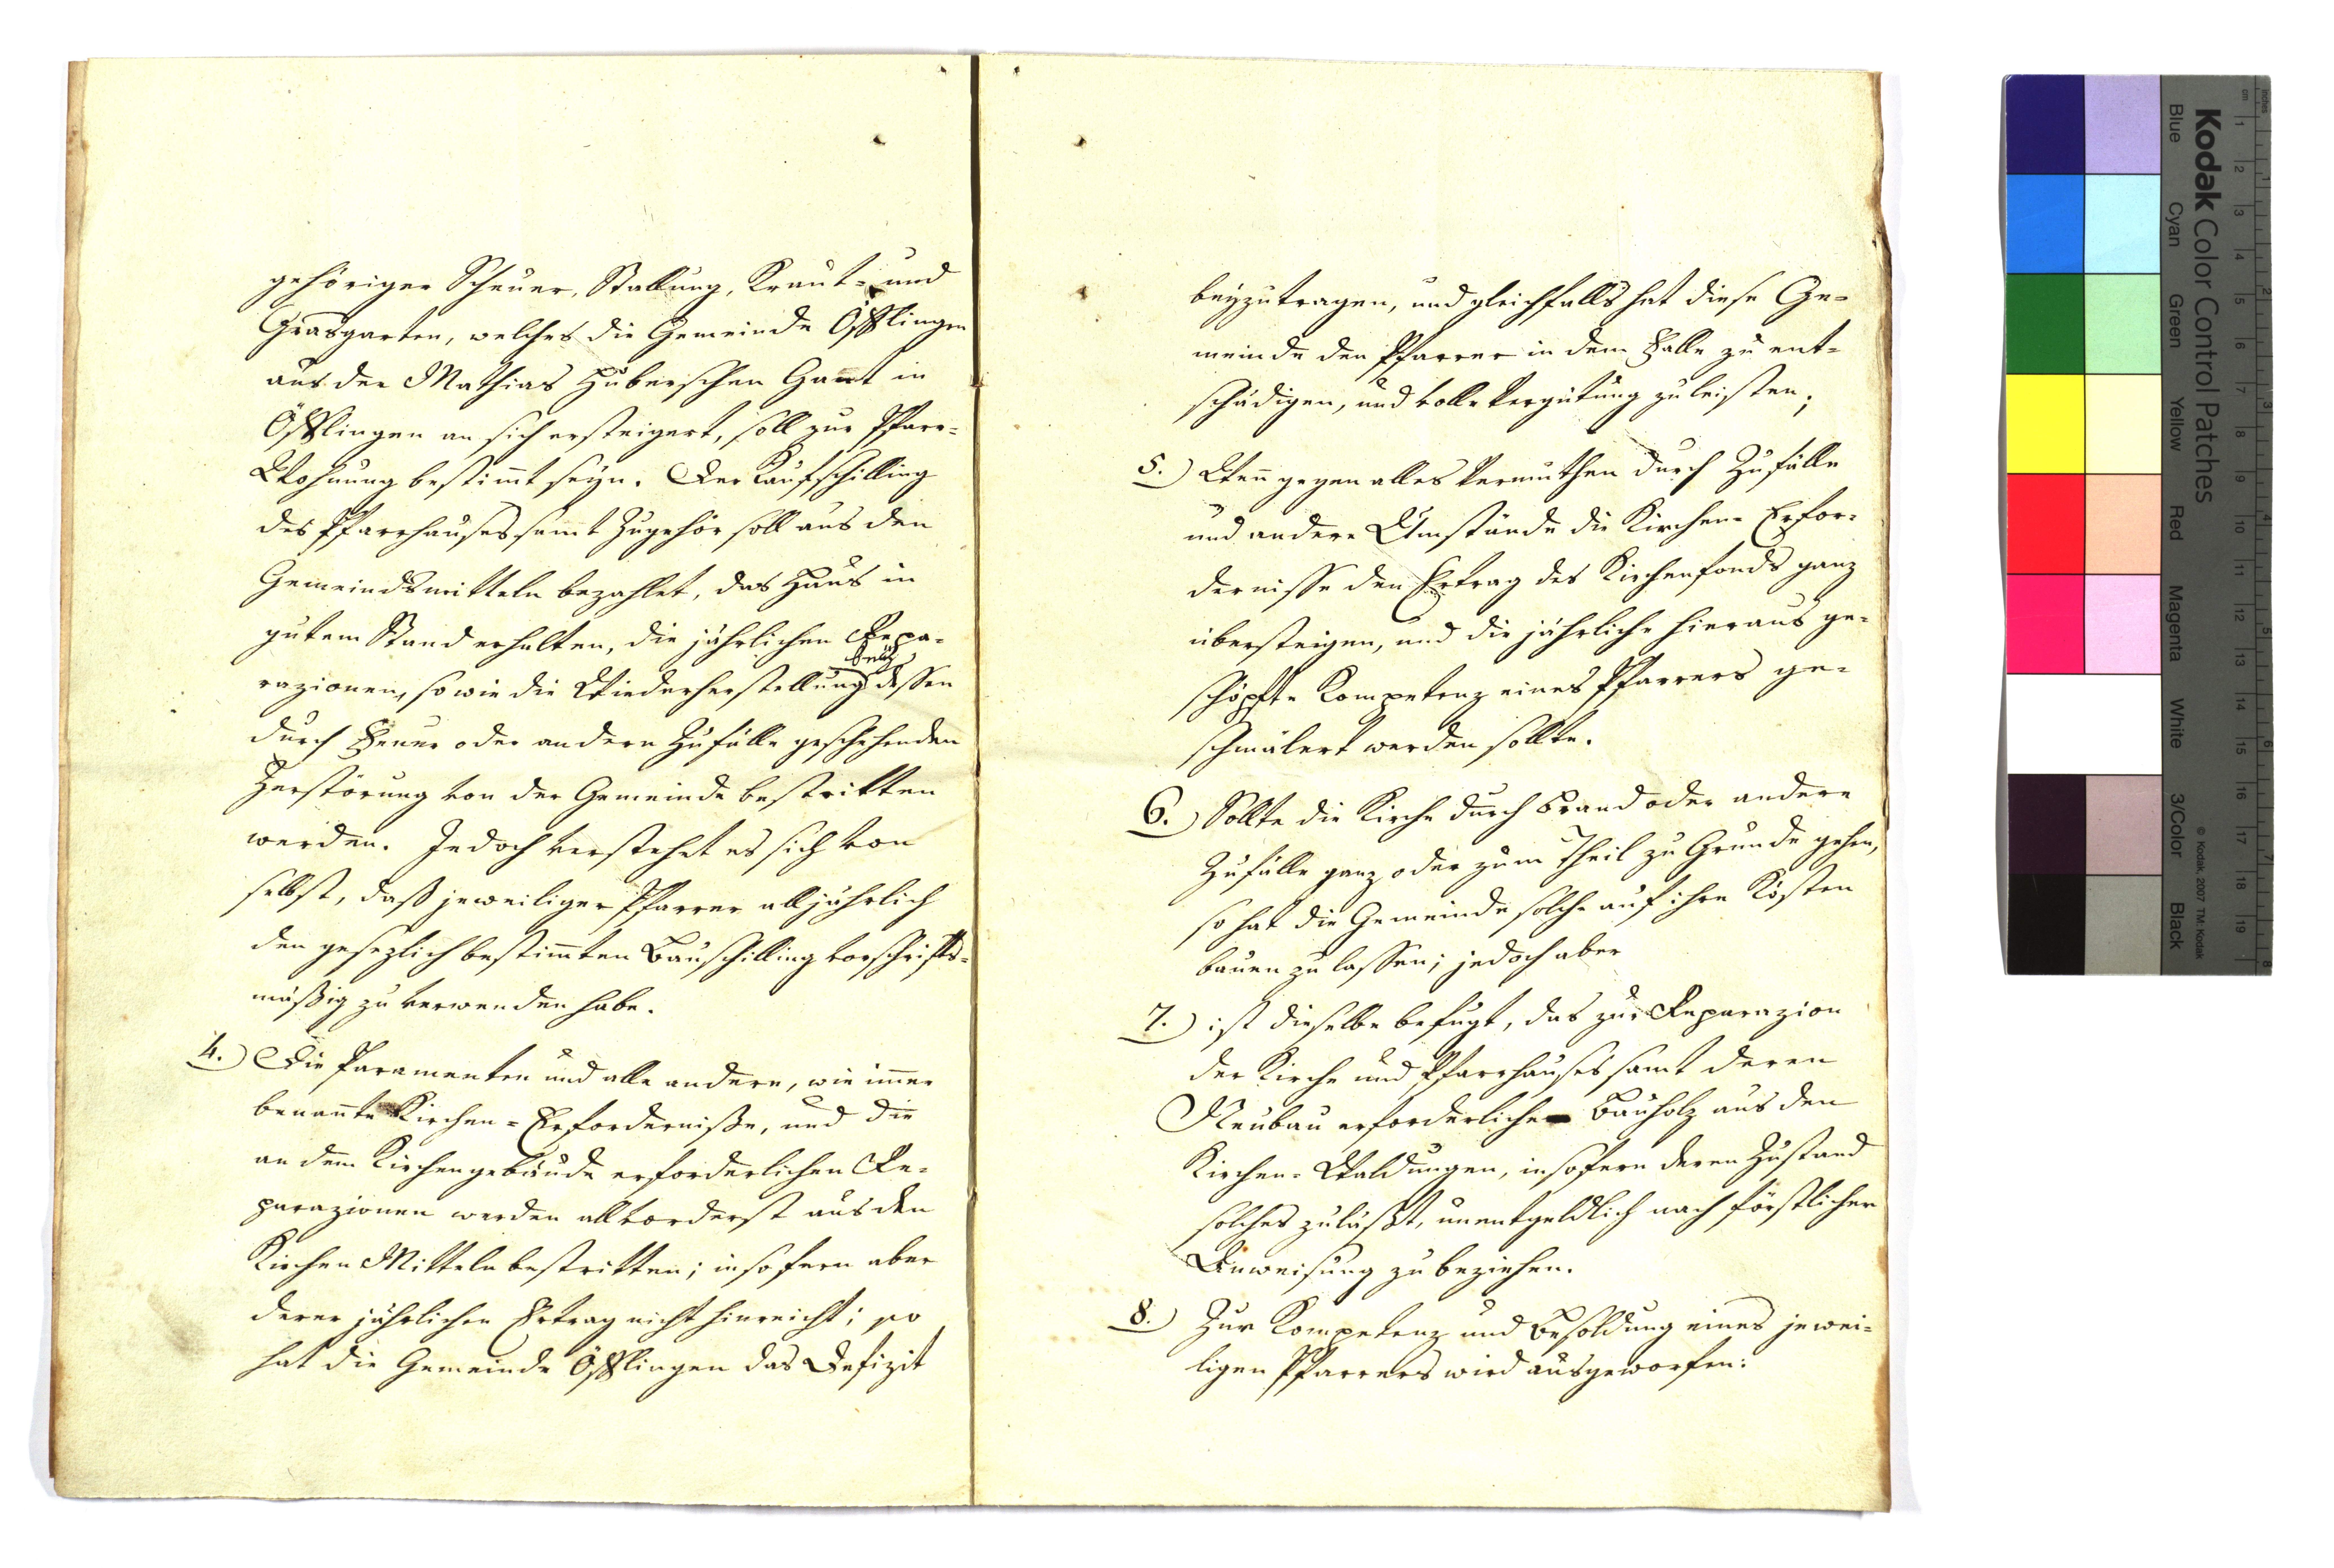 gehöriger Scheuer, Stallung, Kraut- und
Grasgarten, welches die Gemeinde Öfflingen
aus der Mathias Huberschen Gant in
Öfflingen an sich ersteigert, soll zur Pfarr-
Wohnung bestimt seyn. Der Kaufschilling
des Pfarrhauses samt Zugehör soll aus den
Gemeindsmitteln bezahlet, das Haus in
gutem Stand erhalten, die jährlichen Repa-
razionen, so wie die Wiederherstellung dessen
durch Feuer oder andern Zufälle geschehenden
Zerstörung von der Gemeinde bestritten
werden. Jedoch verstehet es sich von
selbst, daß jeweiliger Pfarrer alljährlich
den gesezlich bestimten Bauschilling vorschrifts-
mäßig zu verwenden habe.
4.) Die Paramenten und alle andern, wie imer
benante Kirchen-Erforderniße, und die
an dem Kirchengebäude erforderlichen Re-
parazionen werden allvorderst aus den
Kirchen Mitteln bestritten; in so fern aber
derer jährlicher Ertrag nicht hinreicht; so
hat die Gemeinde Öfflingen das Defizit
beyzutragen, und gleichfalls hat diese Ge-
meinde den Pfarrer in dem Falle zu ent-
schädigen, und volle Vergütung zu leisten;
5.) Wen gegen alles Vermuthen durch Zufälle
und andere Umstände die Kirchen-Erfor-
dernisse den Ertrag des Kirchenfonds ganz
übersteigen, und die jährliche hieraus ge-
schöpfte Kompetenz eines Pfarrers ge-
schmälert werden sollte.
6.) Sollte die Kirche durch Brand oder andere
Zufälle ganz oder zum Theil zu Grunde gehen,
so hat die Gemeinde solche auf ihre Kösten
bauen zu lassen; jedoch aber
7.) ist dieselbe befugt, das zur Reparazion
der Kirche und Pfarrhauses samt deren
Neubau erforderliche Bauholz aus den
Kirchen-Waldungen, in sofern deren Zustand
solches zuläßt, unentgeldlich nach förstlicher
Anweisung zu beziehen.
8.) Zur Kompetenz und Besoldung eines jewei-
ligen Pfarrers wird ausgeworfen:
Kodak Color Control Patches
Blue Cyan Green Yellow Red Magenta White 3/Color Black
© Kodak, 2007 TM: Kodak
inches 1 2 3 4 5 6 7 8
cm 1 2 3 4 5 6 7 8 9 10 11 12 13 14 15 16 17 18 19